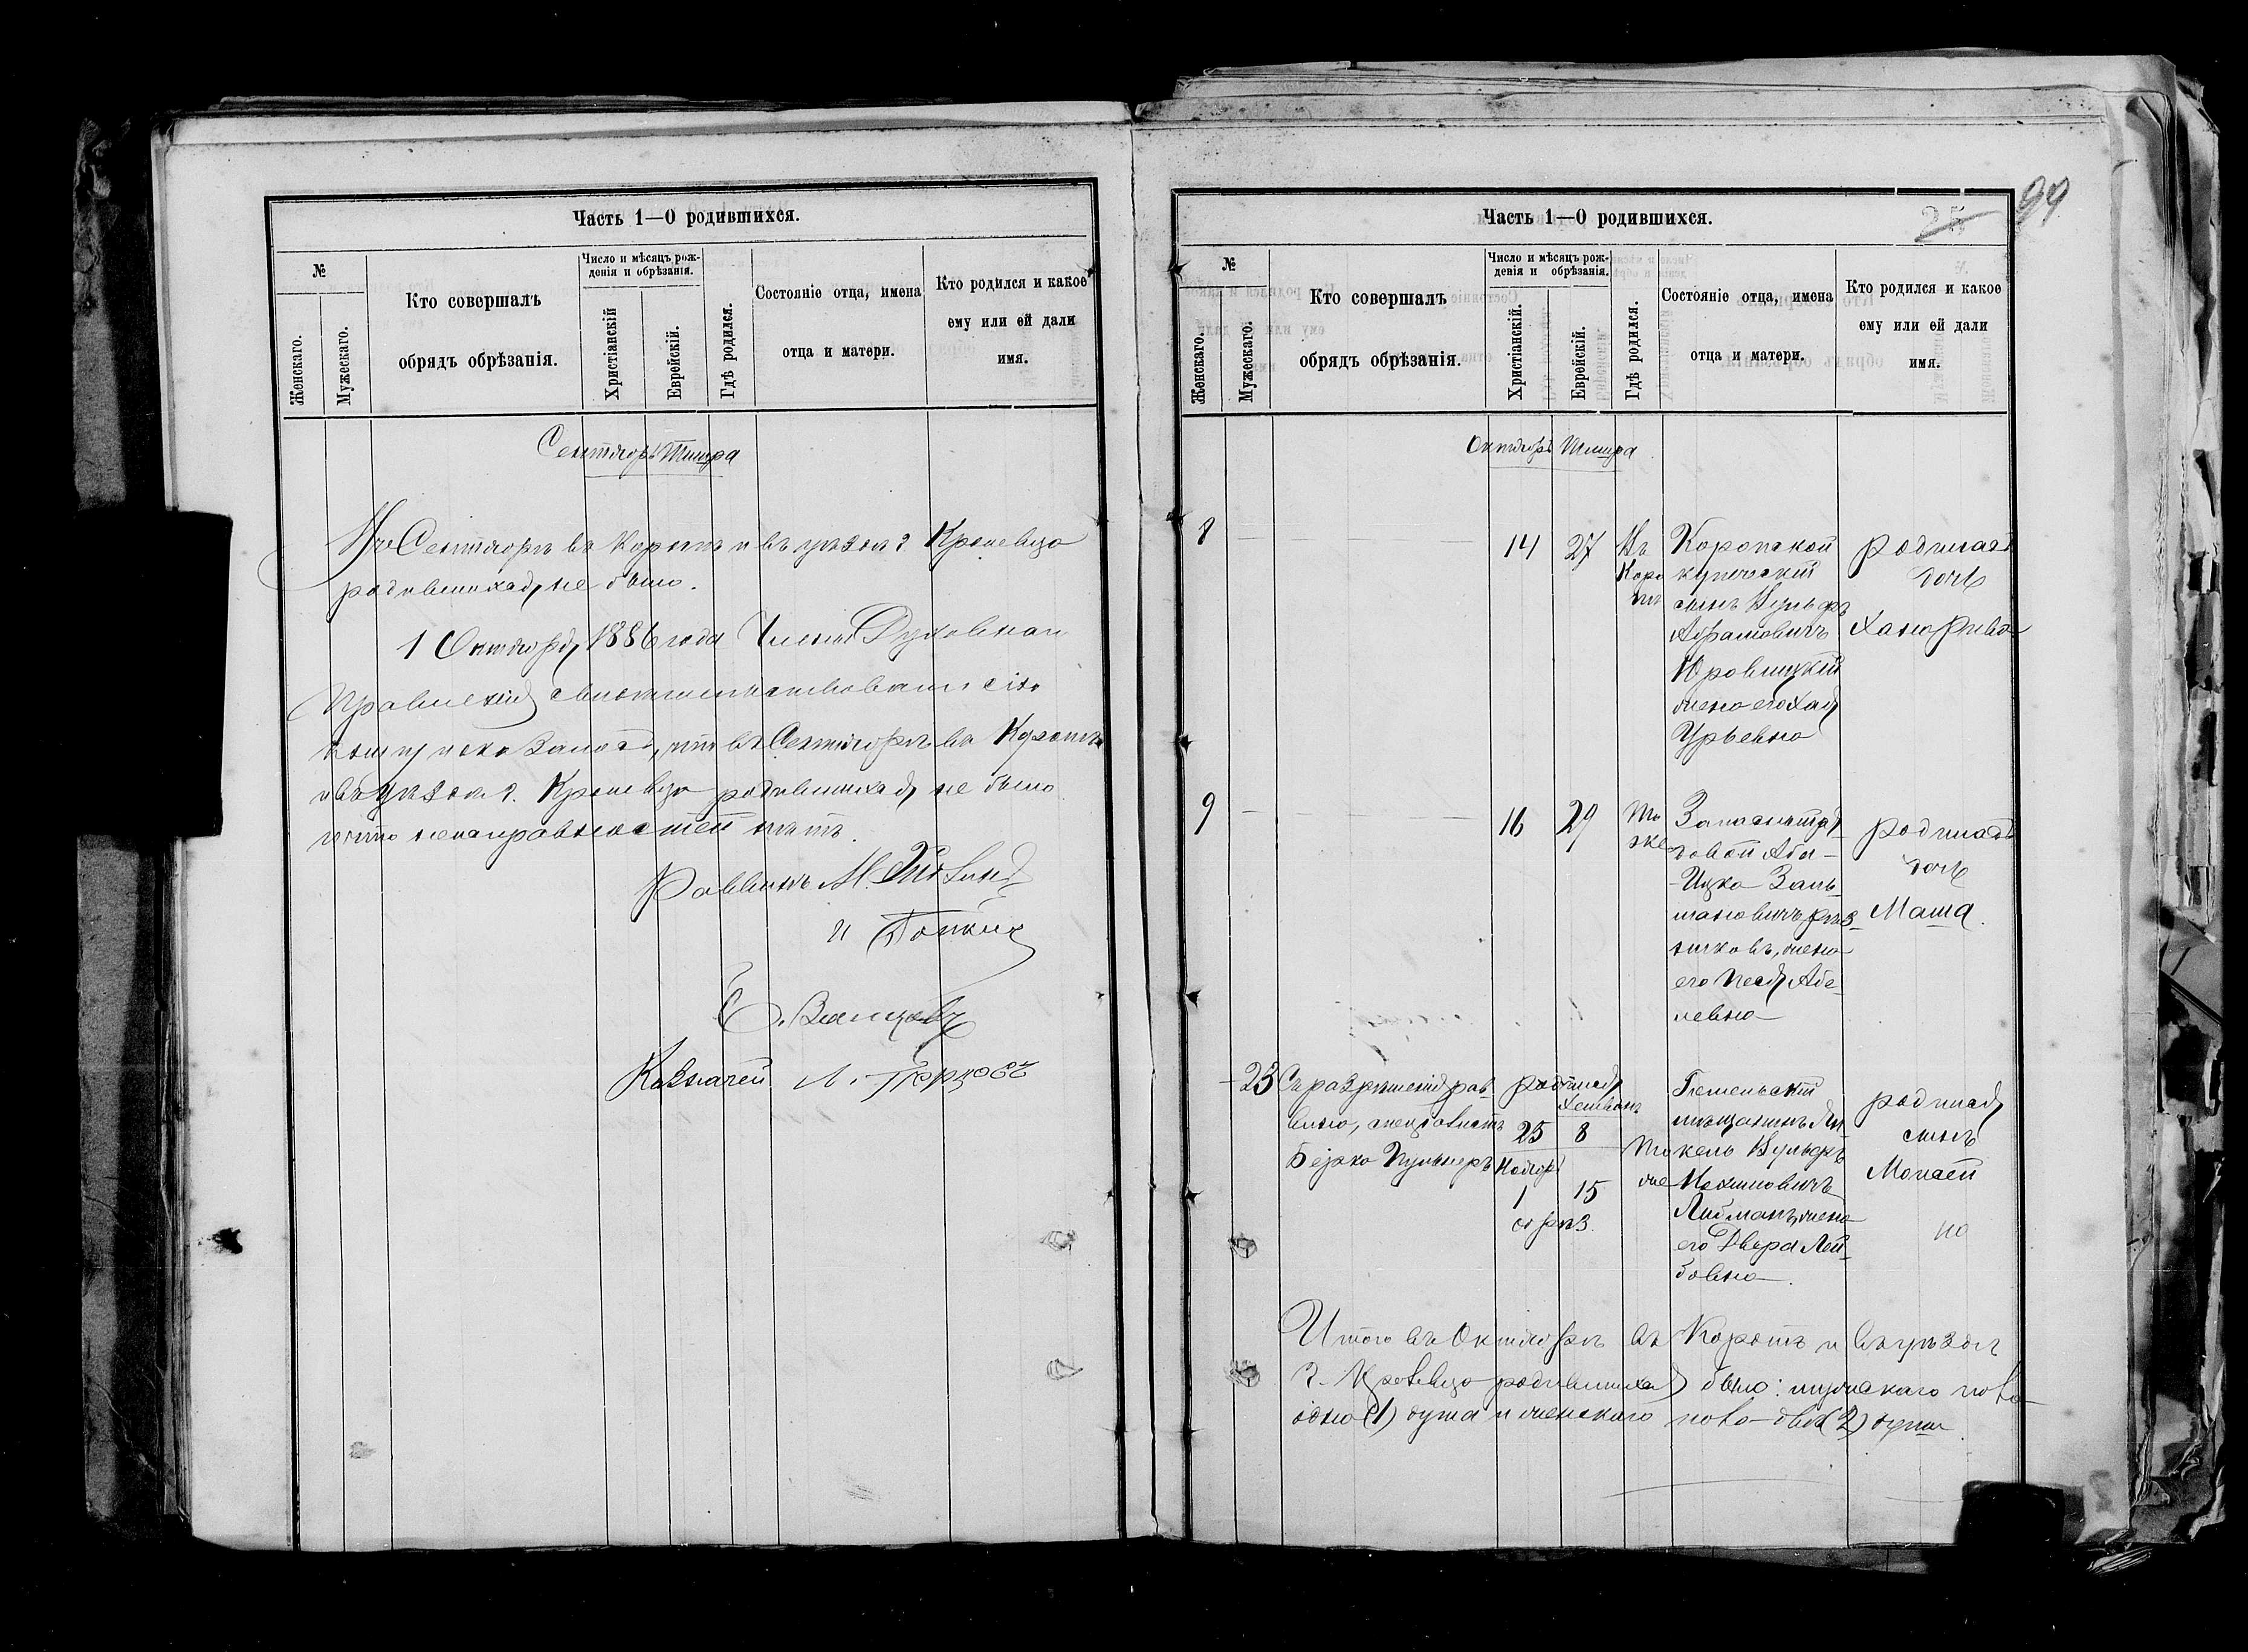 Часть 1—О родившихся.
№
Женскаго.
Мужескаго.
Кто совершалъ
обрядъ обрѣзанія.
Число и мѣсяцъ рож-
денія и обрѣзанія.
Христіанскій
Еврейскій.
Гдѣ родился.
Состояніе отца, имена
отца и матери.
Кто родился и какое
ему или ей дали
имя.
Сентябрь Тишра
Въ Сентябрѣ въ Коропѣ и въ уѣздѣ г. Кролевца
родившихся не было.
1 Октября 1886 года Члены Духовнаго
Правленія свидѣтельствовали сію
книгу и оказалось, что въ Сентябрѣ въ Коропѣ
и въ уѣздѣ г. Кролевца родившихся не было
и что неисправностей нѣтъ.
Раввинъ М.
Казначей Л.
Часть 1—О родившихся.
25 99
№
Женскаго.
Мужескаго.
Кто совершалъ
обрядъ обрѣзанія.
Число и мѣсяцъ рож-
денія и обрѣзанія.
Христіанскій.
Еврейскій.
Гдѣ родился.
Состояніе отца, имена
отца и матери.
Кто родился и какое
ему или ей дали
имя.
Октябрь Тишра
8 — — — 14 27 Въ Коро пѣ
Коропской
купеческій
сынъ Вульфъ
Абрамовичъ
Юровицкій
жена его Хая
Урьевна
родилась
дочь
Хана Рива
9 — — — 16 29 То же
Запасный ряд
довой Аба-
Ицко Заль-
мановичъ Рѣз-
никовъ, жена
его Песя Абе-
левна
родилась
дочь
Маша.
— 23 Съ разрѣшенія рав-
вина, спеціалистъ
Берко
родился
Хешванъ
25 8
Ноября
1 15
обрѣз.
То же
Гомельскій
мѣщанинъ Ян-
кель Вульфъ
Нохимовичъ
Либманъ, жена
его Двера Лей-
бовна.
родился
сынъ
Моисей
Итого въ Октябрѣ въ Коропѣ и въ уѣздѣ
г. Кролевца родившихся было: мужескаго пола
одна (1) душа и женскаго пола – двѣ (2) души.